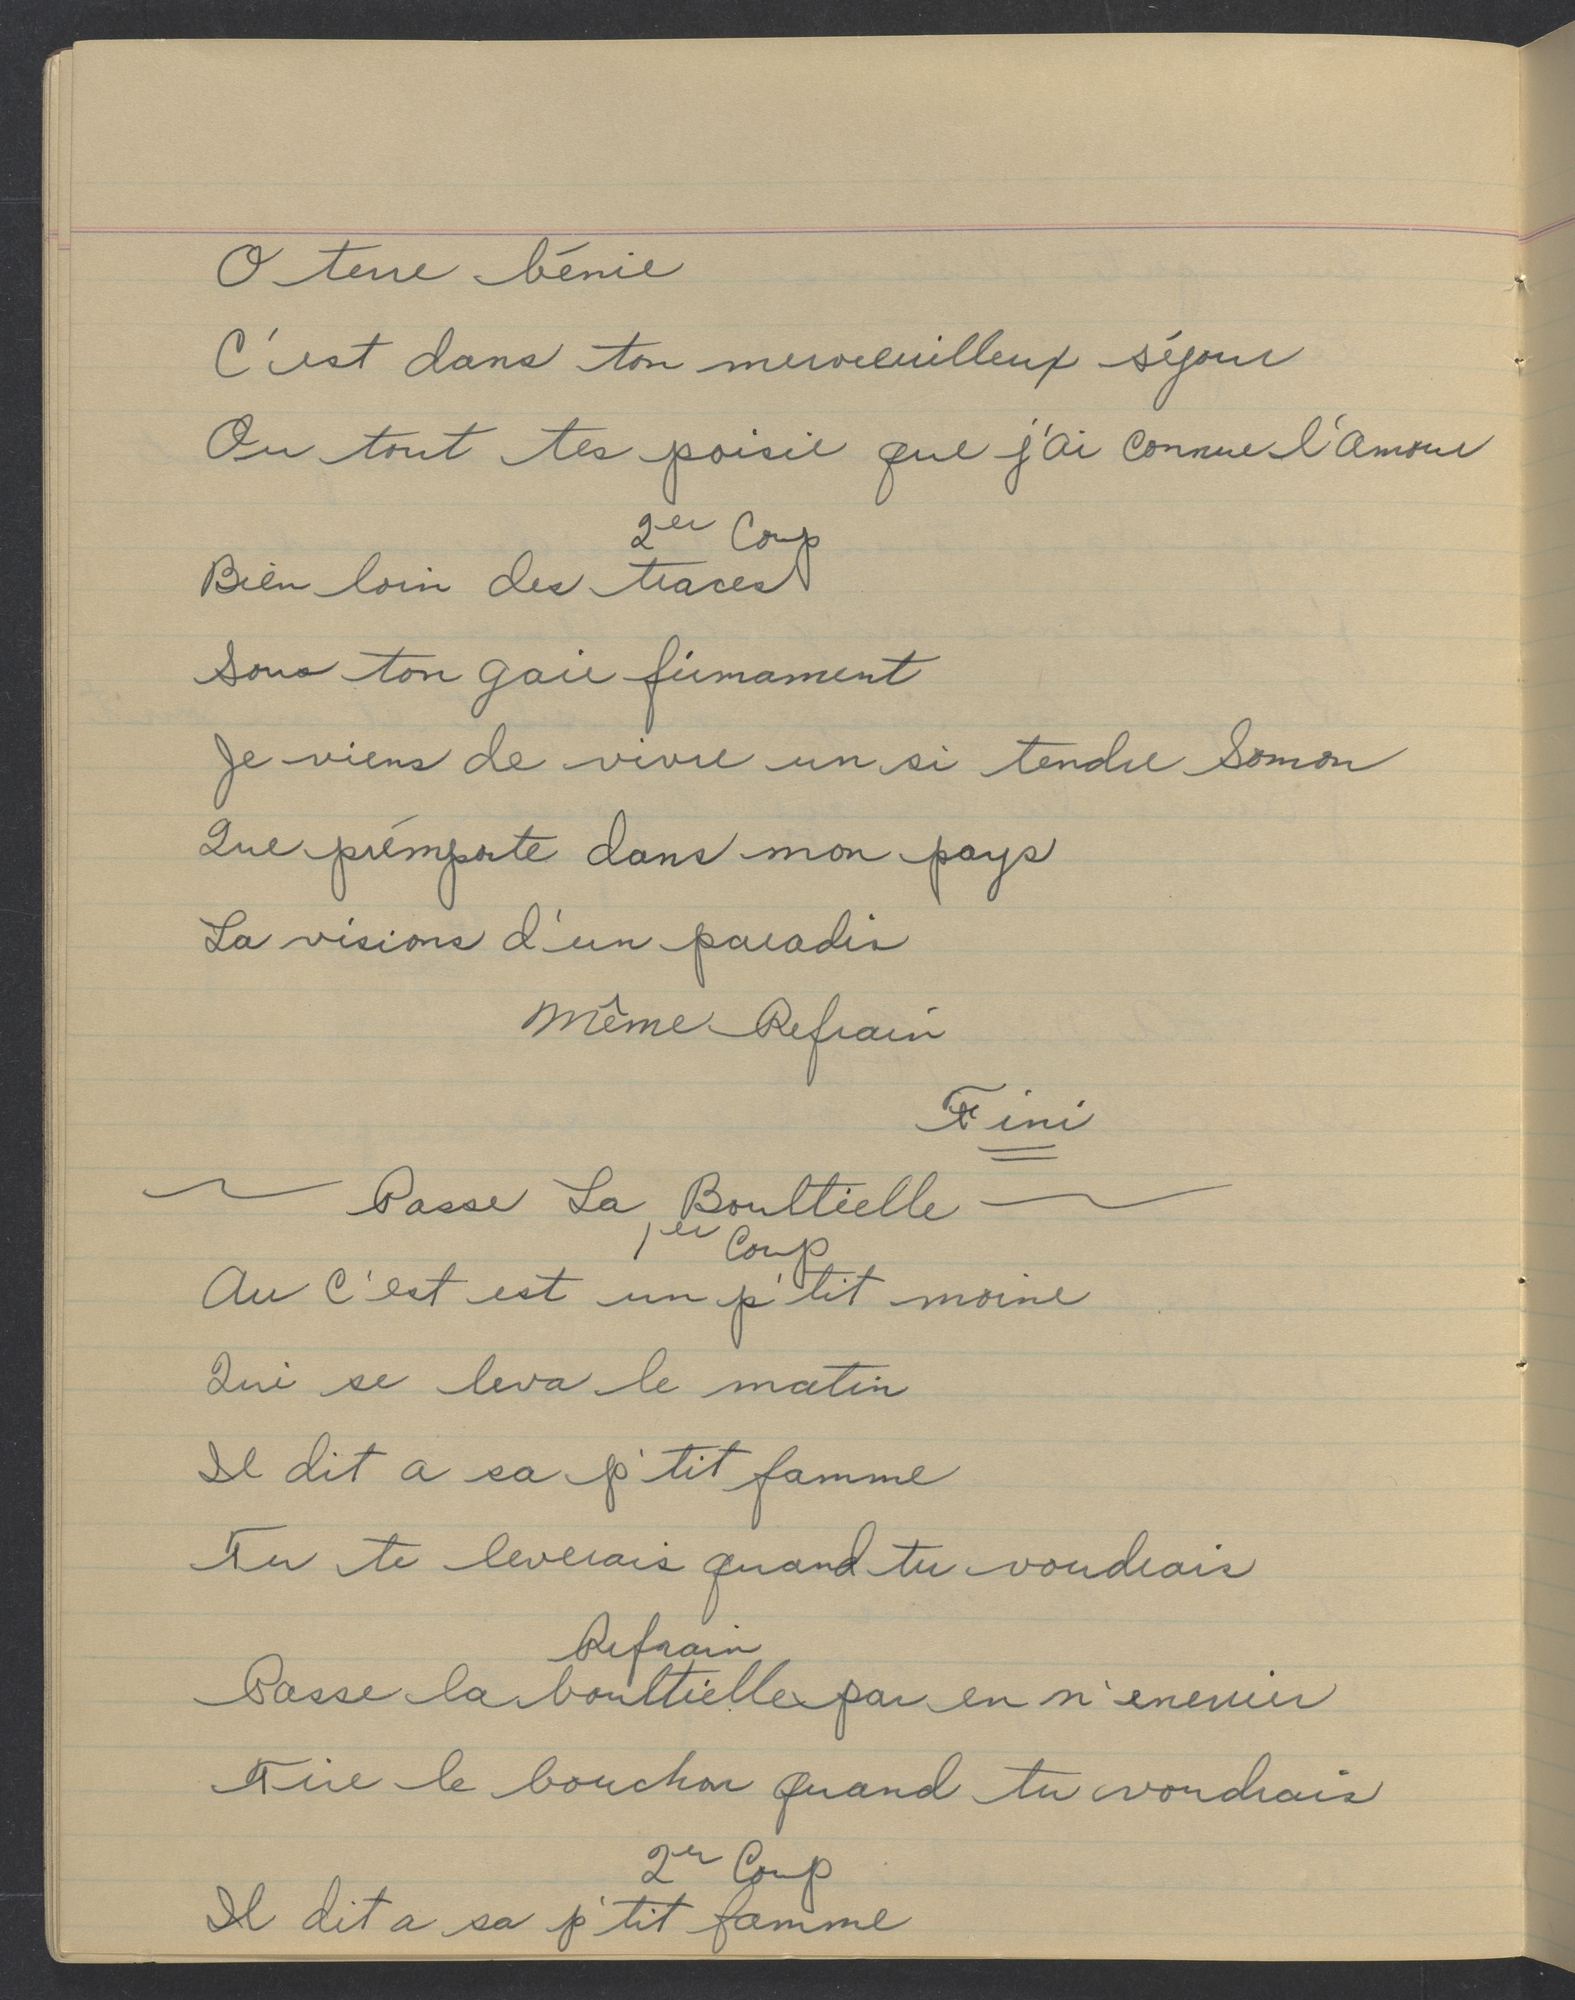 O terre bénie
C'est dans ton merveuilleux séjour
Ou tout tes poisie que j'ai connue l'amour
2er Coup
Bien loin des traces
Sous ton gaie firmament
Je viens de vivre un si tendre Somon
Que prémporte dans mon pays
La visions d'un paradis
Même Refrain
Fini
Passe La Boulteille
1er Coup
Au C'est est un p'tit moine
Qui se leva le matin
Il dit a sa p'tit famme
Tu te leverais quand tu voudrais
Refrain
Passe la boultielle par en n'enerier
Tire le bouchon quand tu voudrais
2er Coup
Il dit a sa p'tit famme